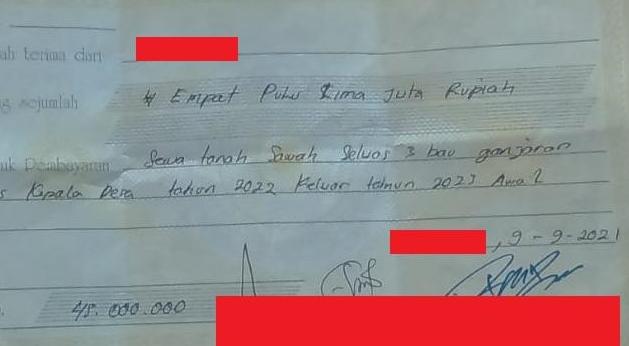 ah terima dari
g sejumlah # Empat Pulu Lima Juta Rupiah
uk Pembayaran Sewa tanah Sawah Seluas 3 bau ganjaran
s Kepala Desa tahun 2022 Keluar tahun 2023 Awal
, 9 - 9 - 2021
45.000.000